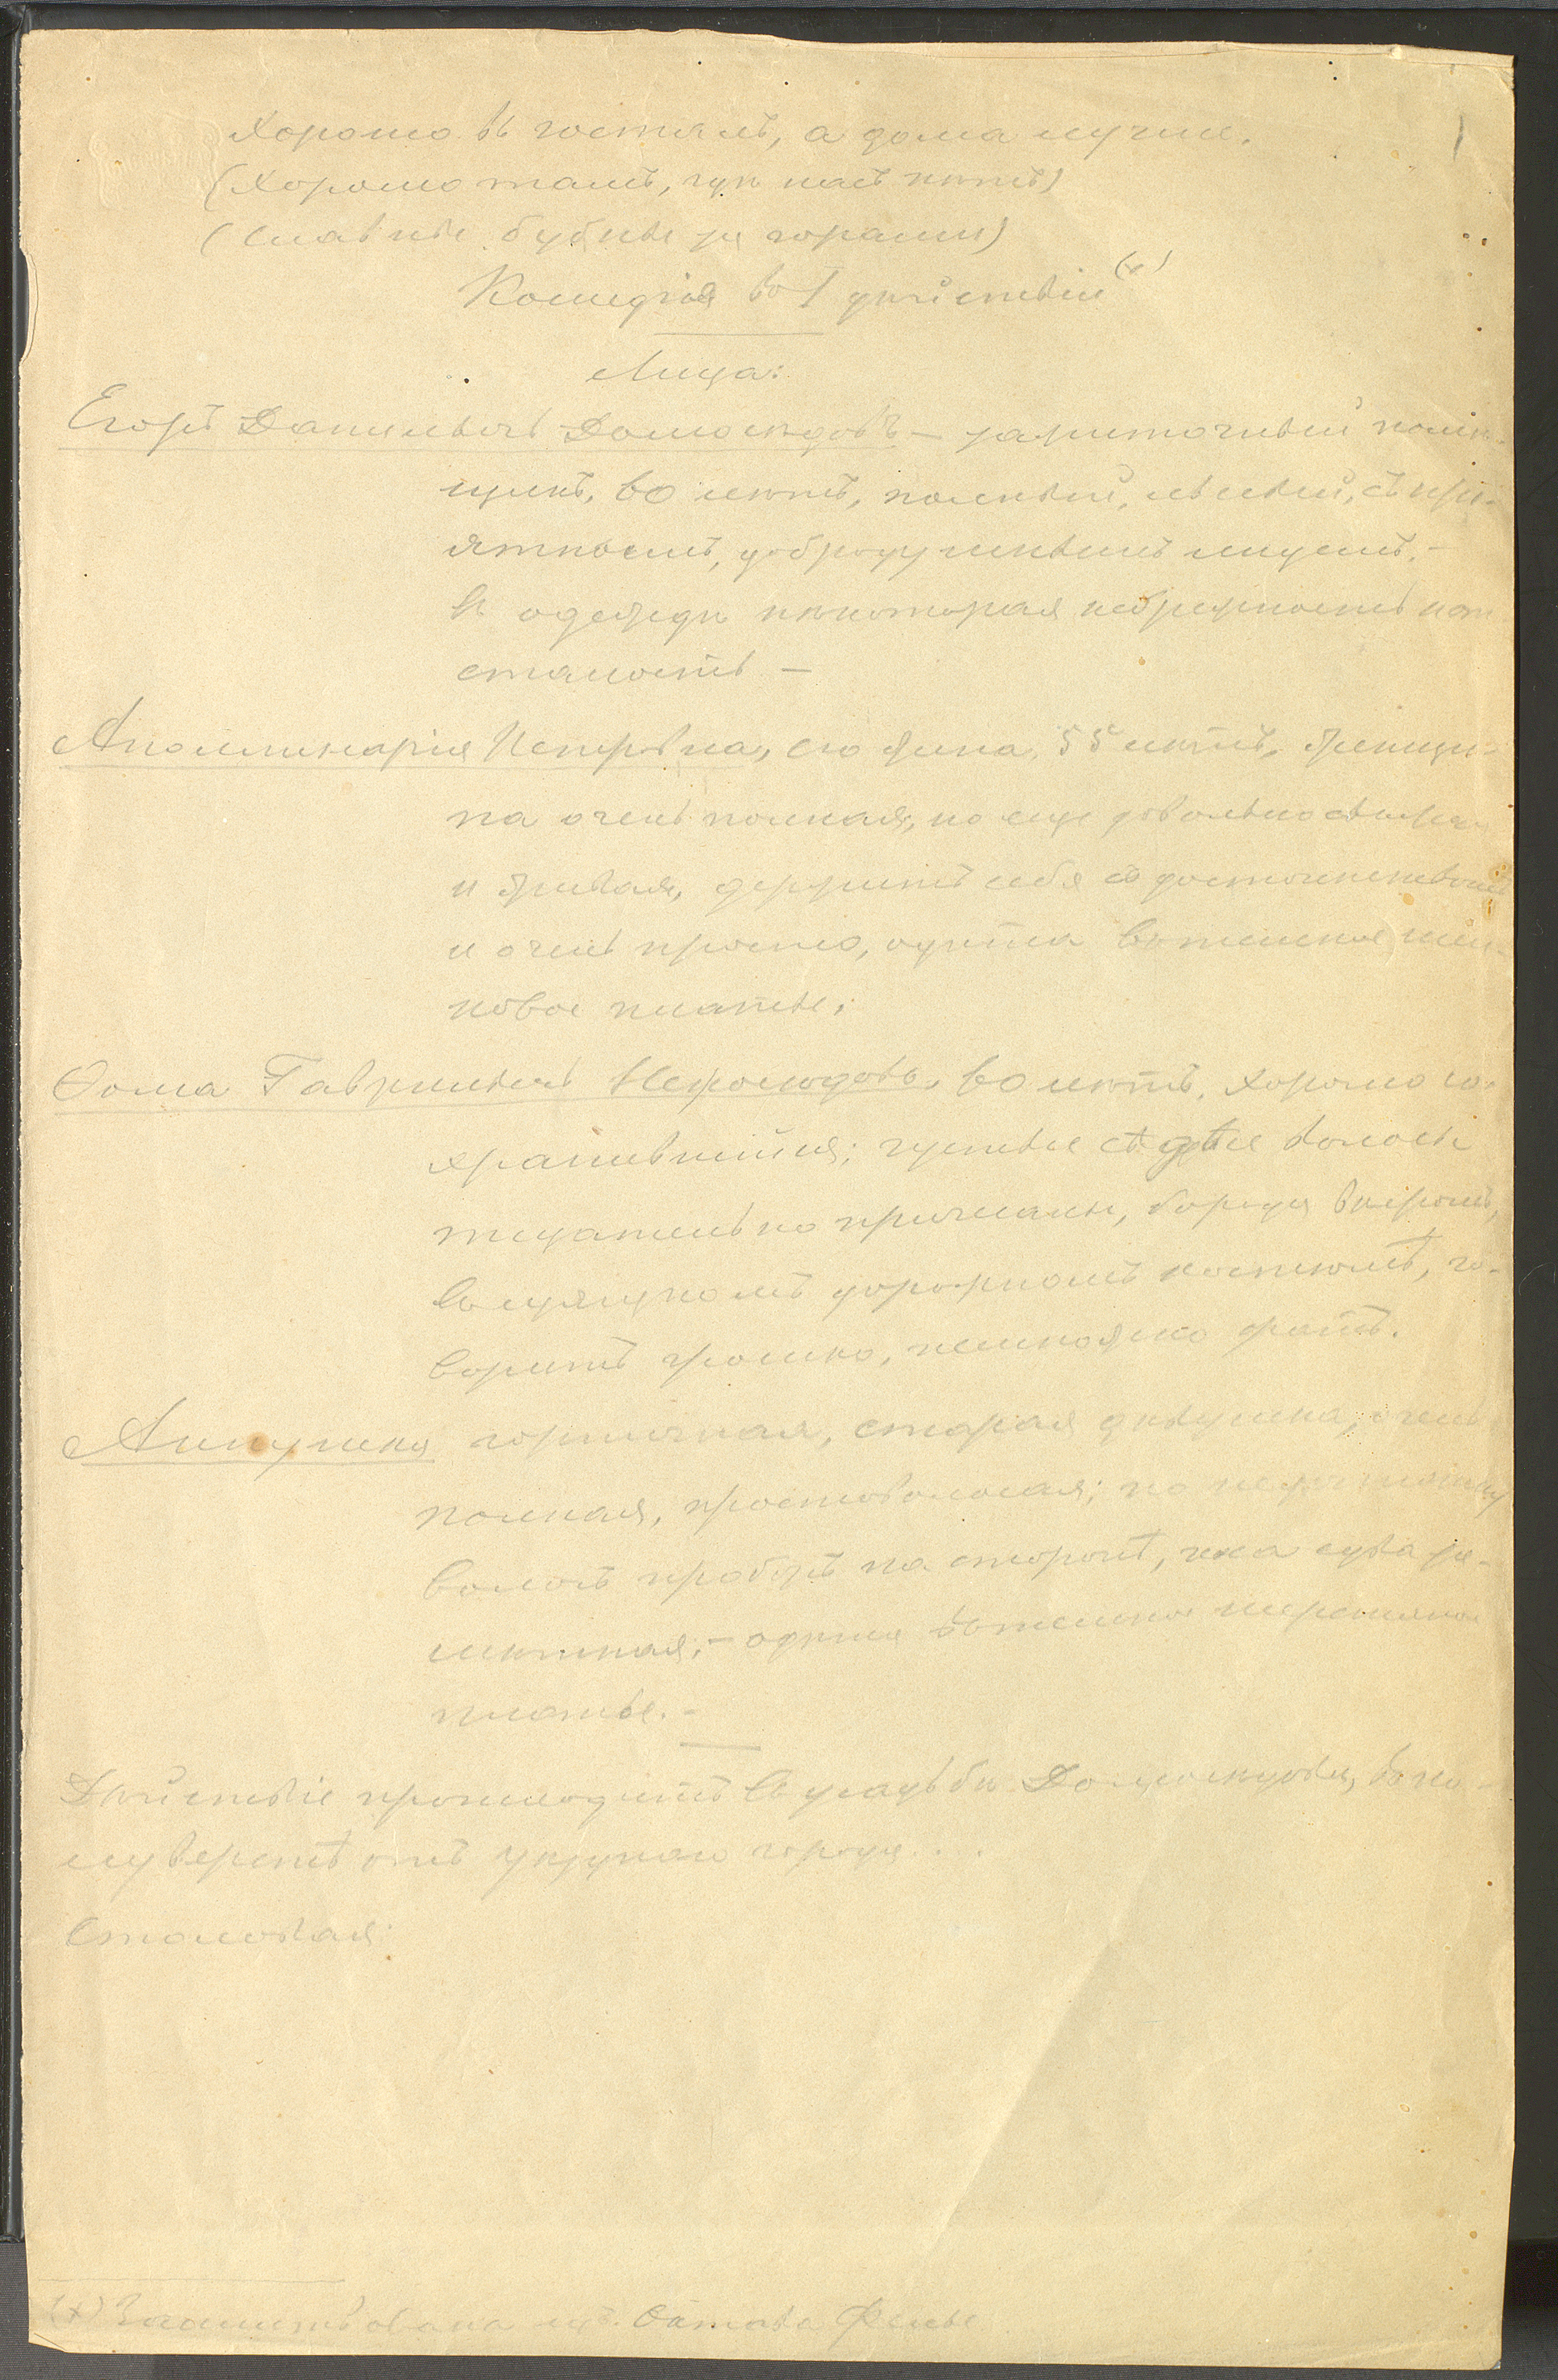 Хорошо въ гостяхъ, а дома лучше.
(Хорошо тамъ, гдѣ насъ нѣтъ)
(Славны бубны за горами)
Комедія въ 1 дѣйствіи (х)
Лица:
Егоръ Данилычъ Домосѣдовъ – зажиточный помѣ-
щикъ, 60 лѣтъ, полный, лысый, съ прі-
ятнымъ, добродушнымъ лицомъ, –
въ одеждѣ нѣкоторая небрежность и от-
сталость –
Аполлинарія Петровна, его жена, 55 лѣтъ, женщи-
на очень полная, но еще довольно свѣжая
и живая, держитъ себя съ достоинствомъ
и очень просто, одѣта въ темное шел-
ковое платье.
Ѳома Гаврилычъ Непосѣдовъ, 60 лѣтъ, хорошо со-
хранившійся; густые сѣдые волосы
тщательно причесаны, борода вѣеромъ,
въ изящномъ дорожномъ костюмѣ, го-
воритъ громко, немножко фатъ.
Аннушка горничная, старая дѣвушка, очень
полная, простоволосая; по недостатку
волосъ проборъ на сторонѣ, коса едва за-
мѣтная; – одѣта въ темное шерстяное
платье. –
Дѣйствіе происходитъ въ усадьбѣ Домосѣдова,
верстъ отъ уѣзднаго города....
Столовая
(х) Заимствована изъ Октава Фелье